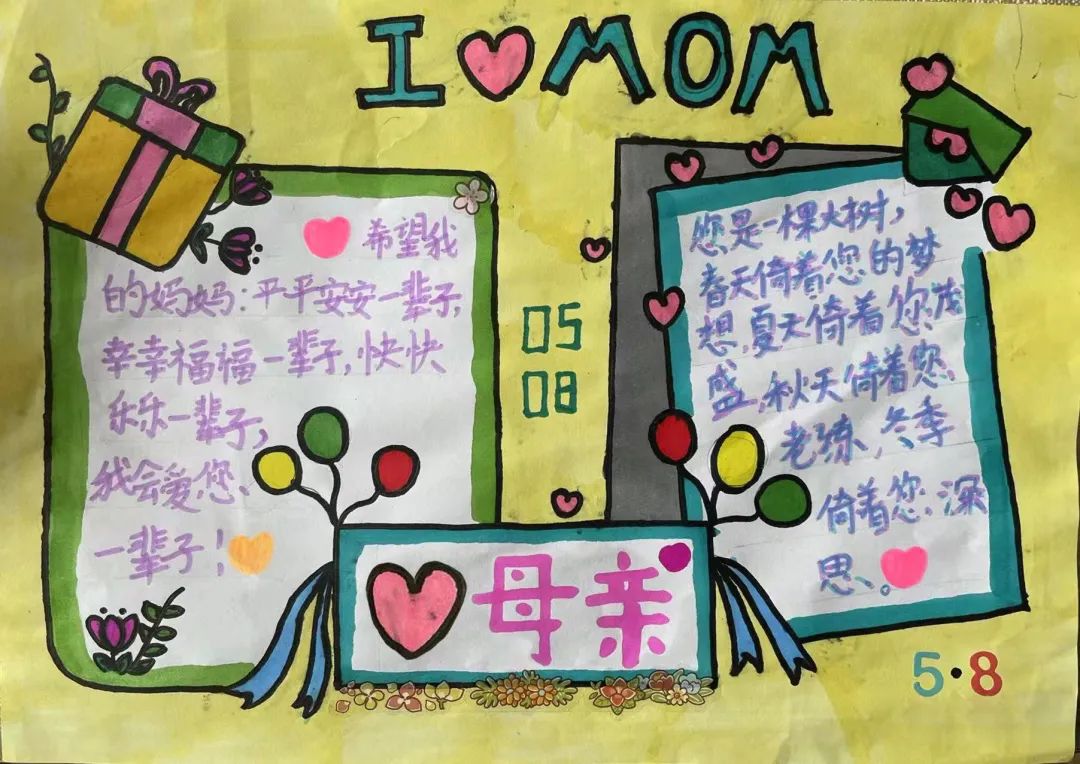 I MOM
希望我
的妈妈:平平安安一辈子,
幸幸福福一辈子,快快
乐乐一辈子,
我会爱您、
一辈子!
05
08
您是一棵大树,
春天倚着您的梦
想,夏天倚着您茂
盛,秋天倚着您、
老练,冬季
倚着您、深
思、。
母亲
5·8